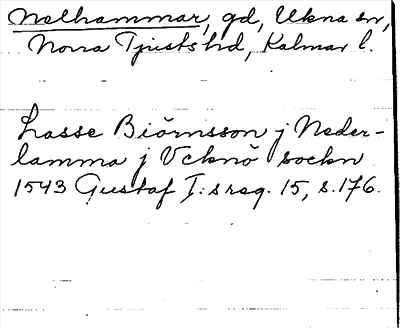 Nelhammar, gd, Ukna sn,
Norra Tjusts hd, Kalmar l.
Lasse Biörnsson j Neder-
lamma j Vcknö sockn
1543 Gustaf I:s reg. 15, s. 176.